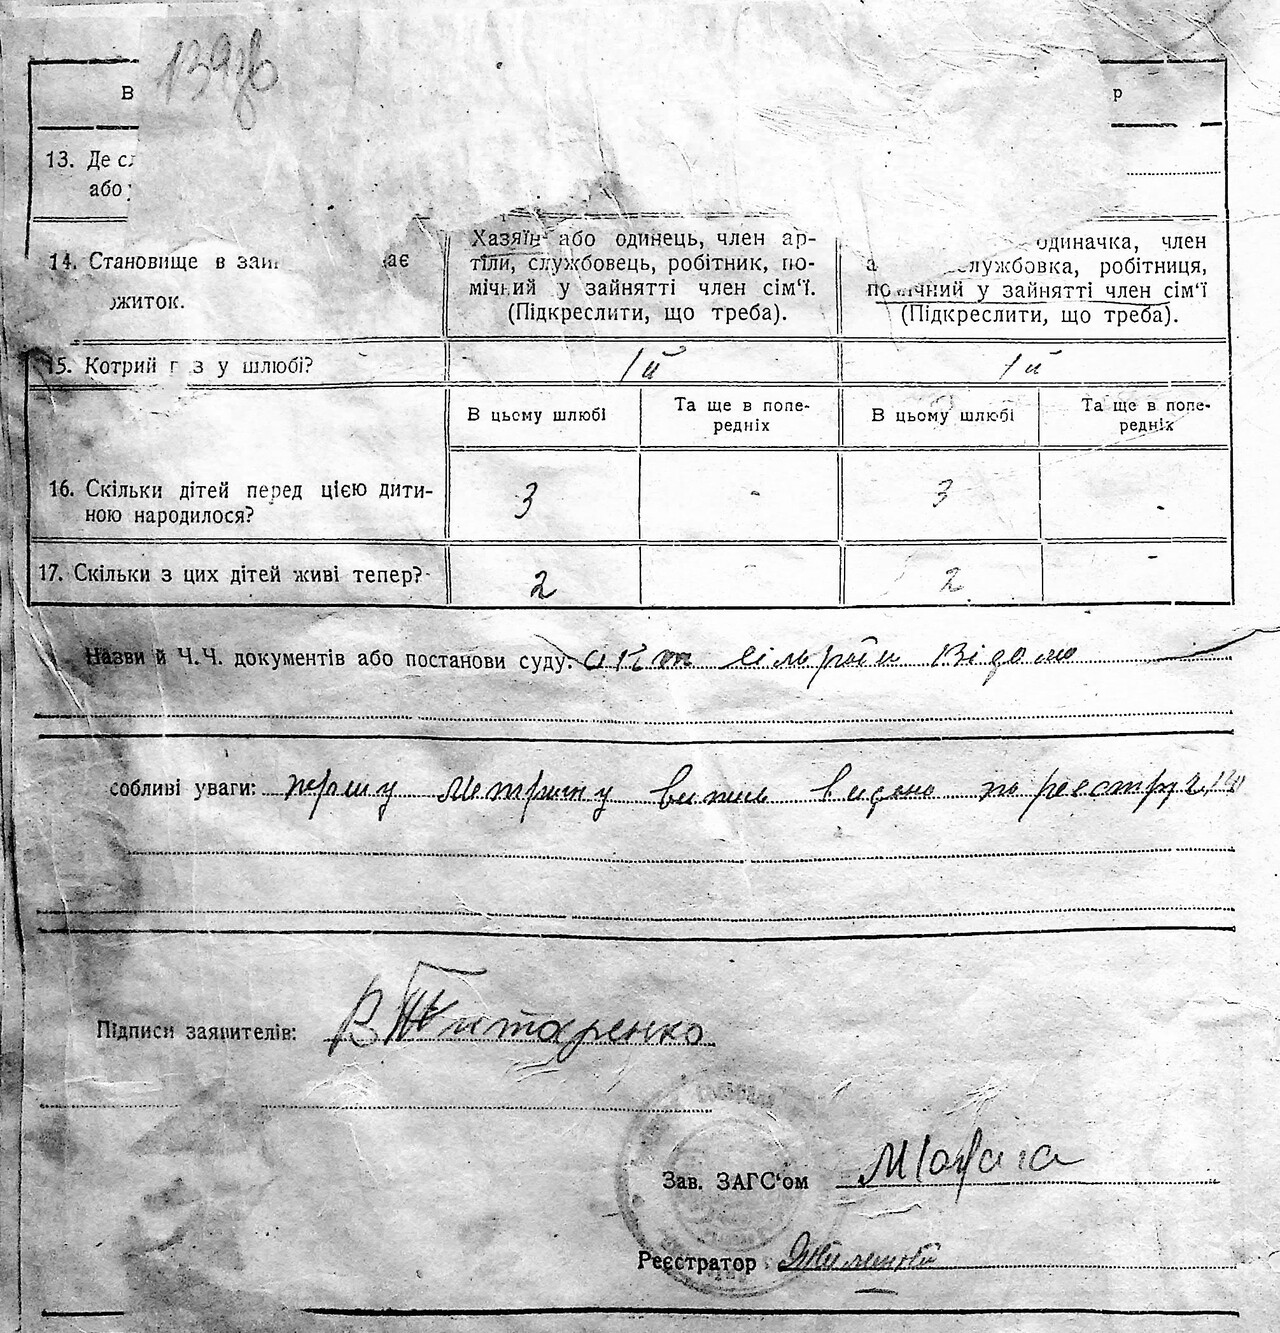 139зв
В
р
13. Де сл
або
14. Становище в зан ає
житок.
Хазяїн або одинець, член ар-
тіли, службовець, робітник, по-
мічний у зайнятті член сім'ї.
(Підкреслити, що треба).
одиначка, член
а службовка, робітниця,
помічний у зайнятті член сім'ї
(Підкреслити, що треба).
15. Котрий раз у шлюбі?
1й
1й
В цьому шлюбі
Та ще в попе-
редніх
В цьому шлюбі
Та ще в попе-
редніх
16. Скільки дітей перед цією дити-
ною народилося?
3
-
3
-
17. Скільки з цих дітей живі тепер?
2
2
-
Назви й Ч.Ч. документів або постанови суду: акт сільради відомо
собливі уваги: першу метричну випис видано по реєстру
Підписи заявителів: В Титаренко
Зав. ЗАГС'ом
Реєстратор